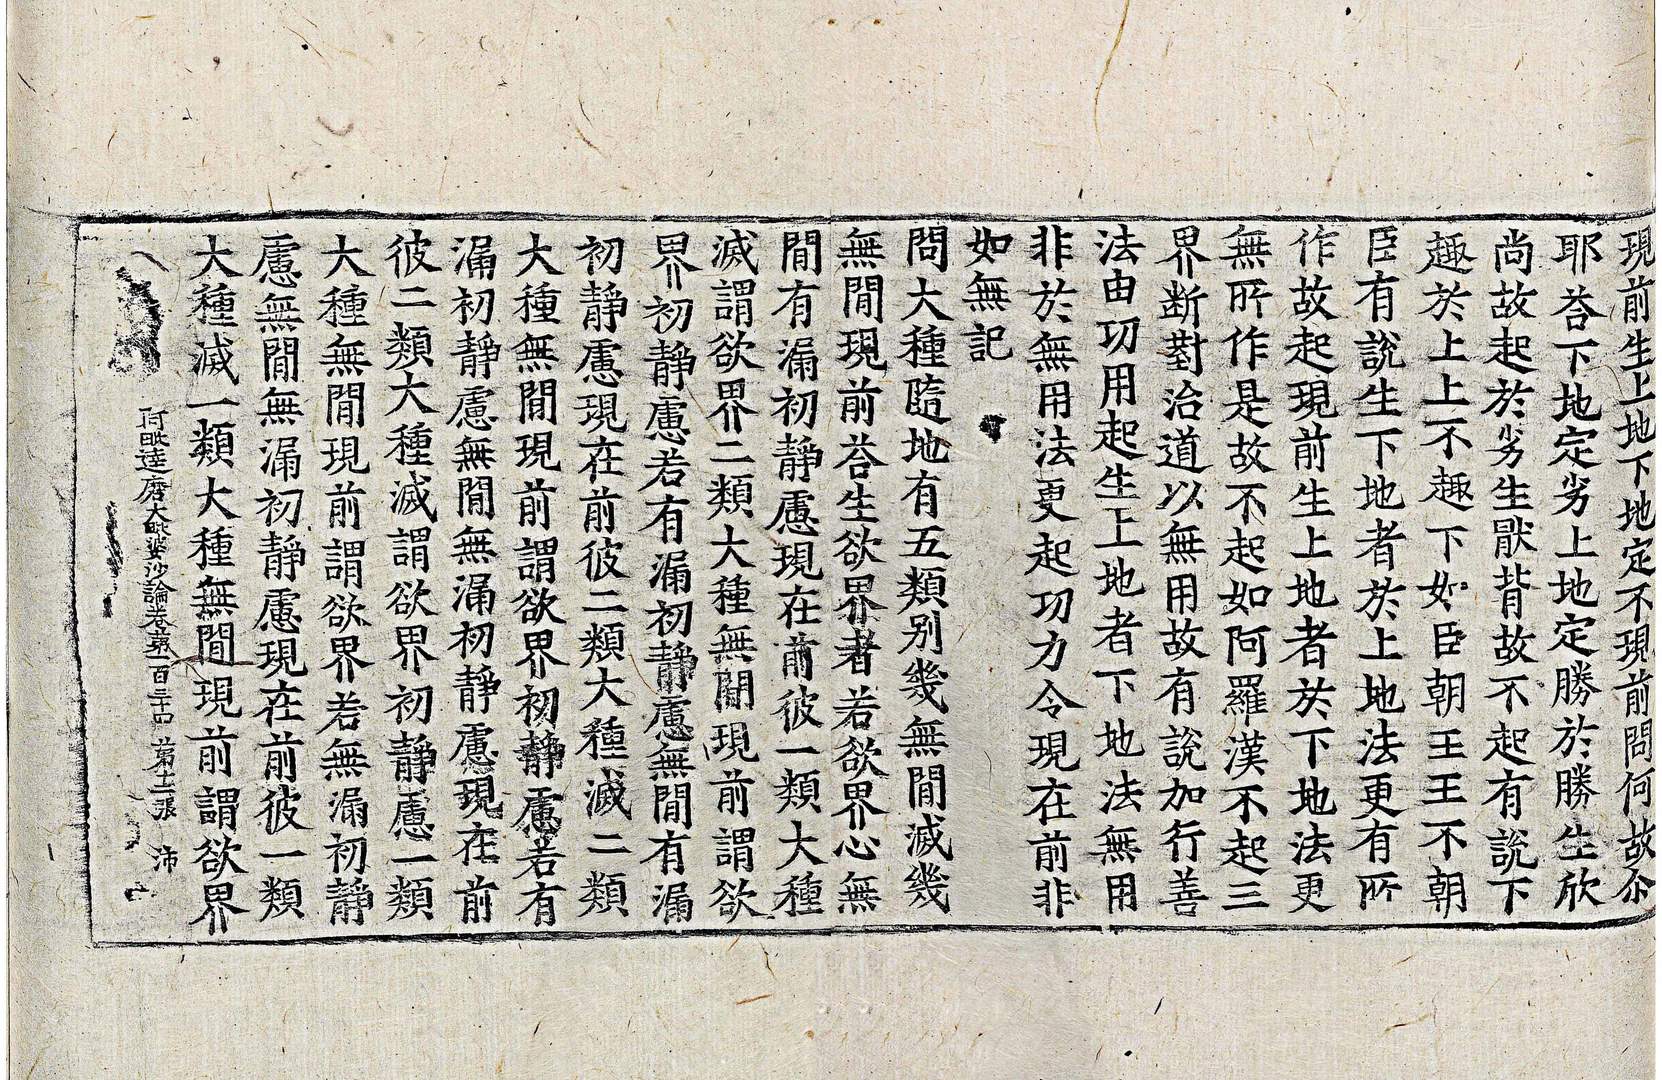 現前生上地下地定不現前問何故尒
耶荅下地定劣上地定勝於勝生欣
尚故起於劣生猒背故不起有說下
趣於上上不趣下如臣朝王王不朝
臣有說生下地者於上地法更有所
作故起現前生上地者於下地法更
無所作是故不起如阿羅漢不起三
界斷對治道以無用故有說加行善
法由功用起生上地者下地法無用
非於無用法更起功力令現在前非
如無記
問大種隨地有五類別幾無間滅幾
無間現前荅生欲界者若欲界心無
間有漏初靜慮現在前彼一類大種
滅謂欲界二類大種無間現前謂欲
界初靜慮若有漏初靜慮無間有漏
初靜慮現在前彼二類大種滅二類
大種無間現前謂欲界初靜慮若有
漏初靜慮無間無漏初靜慮現在前
彼二類大種滅謂欲界初靜慮一類
大種無間現前謂欲界若無漏初靜
慮無間無漏初靜慮現在前彼一類
大種滅一類大種無間現前謂欲界
阿毗達磨大毗婆沙論卷第一百三十四 第十二張 沛